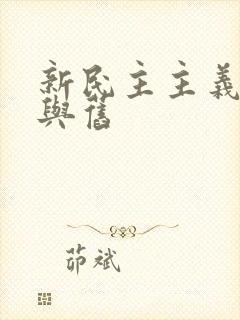 新民主主義
與舊
茆斌